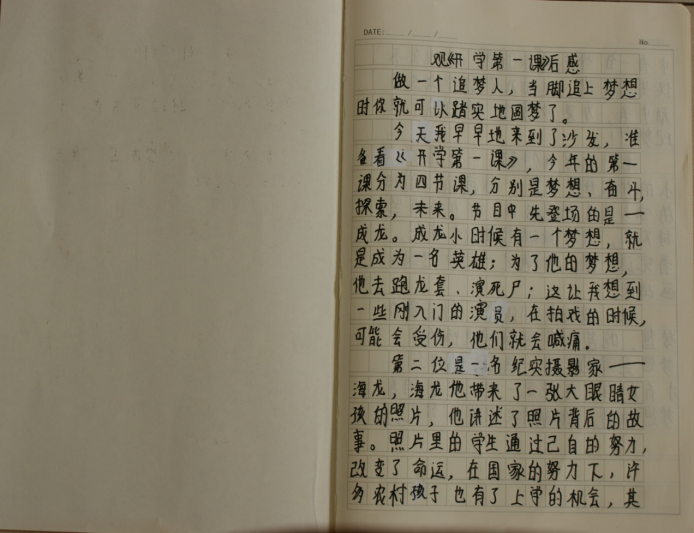 DATE: / /
No
观《开学第一课》后感
做一个追梦人，当脚追上梦想
时你就可以踏实地圆梦了。
今天我早早地来到了沙发，准
备看《开学第一课》，今年的第一
课分为四节课，分别是梦想、奋斗，
探索，未来。节目中先登场的是一
成龙。成龙小时候有一个梦想，就
是成为一名英雄；为了他的梦想，
他去跑龙套、演死尸；这让我想到
一些刚入门的演员，在拍戏的时候，
可能会受伤，他们就会喊痛。
第二位是一名纪实摄影家——
海龙，海龙他带来了一张大眼睛女
孩的照片，他讲述了照片背后的故
事。照片里的学生通过己自的努力，
改变了命运，在国家的努力下，许
多农村孩子也有了上学的机会，其